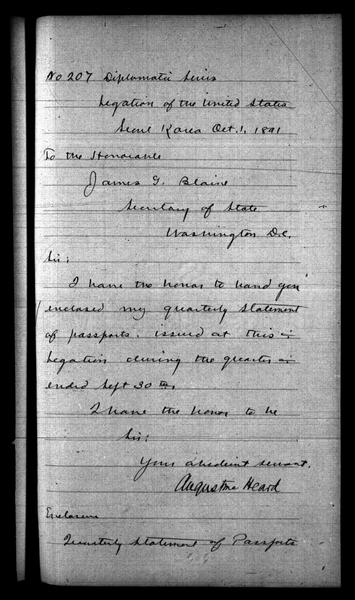 No 207 Diplomatic Series
Legation of the United States
Seoul Korea Oct. 1. 1891
To the Honorable
James G. Blaine
Secretary of State
Washington D.C.
Sir:
I have the honor to hand you
enclosed my quarterly statement
of passports issued at this
Legation during the quarter
ended Sept 30th.
I have the honor to be
Sir:
Your obedient servant.
Augustine Heard
Enclosure
Quarterly Statement of Passports